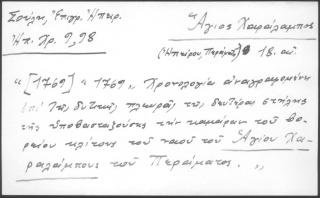 Σούλης, Ἐπιγρ. Ἠπείρ.
Ἠπ. Χρ. 9, 98
Ἅγιος Χαράλαμπος
(Ἠπείρου, Πέραμα) 18. αἰ.
"[1769] "1769" Χρονολογία ἀναγραφομένη
ἐπὶ τῆς δυτικῆς πλευρᾶς τῆς δευτέρας στήλης
τῆς ὑποβασταζούσης τὴν καμάραν τοῦ βο-
ρείου κλίτους τοῦ ναοῦ τοῦ Ἁγίου Χα-
ραλάμπους τοῦ Περάματος. "